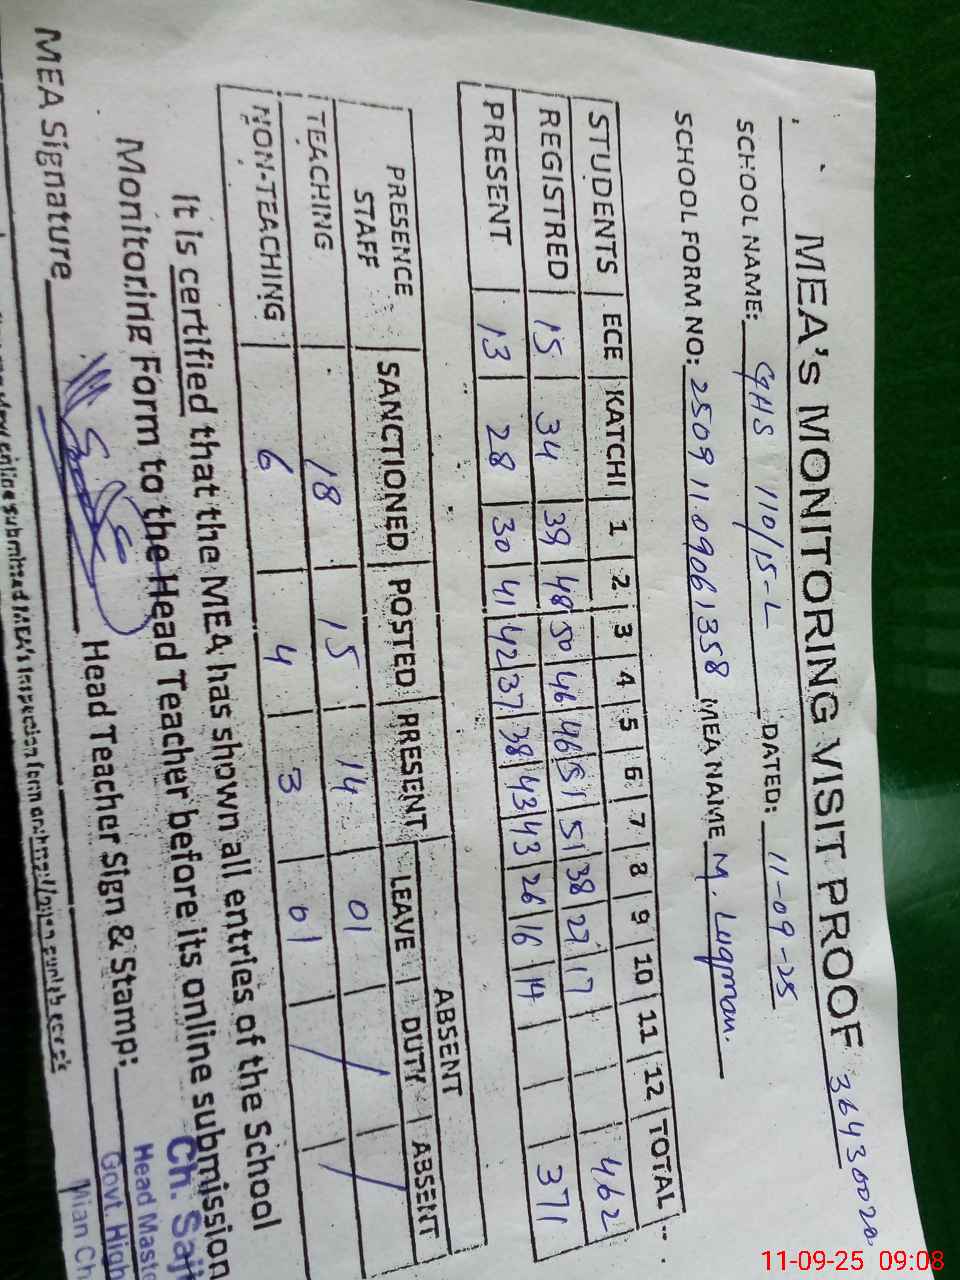 MEA's MONITORING VISIT PROOF 36430020
SCHOOL NAME: GHS 110/15-L DATED: 11-09-25
SCHOOL FORM NO: 25091109061358 MEA NAME M. Luqman.
STUDENTS ECE KATCHI 1 2 3 4 5 6 7 8 9 10 11 12 TOTAL
REGISTRED 15 34 39 48 50 46 46 51 51 38 27 17 462
PRESENT 13 28 30 41 42 37 38 43 43 26 16 14 371
PRESENCE STAFF SANCTIONED POSTED PRESENT ABSENT
LEAVE DUTY ABSENT
TEACHING 18 15 14 01 / /
NON-TEACHING 6 4 3 01 / /
It is certified that the MEA has shown all entries of the School
Monitoring Form to the Head Teacher before its online submission
MEA Signature Head Teacher Sign & Stamp:
Ch. Sajj
Head Maste
Govt. High
Mian Ch
online submitted MEA's Inspection form on
11-09-25 09:08